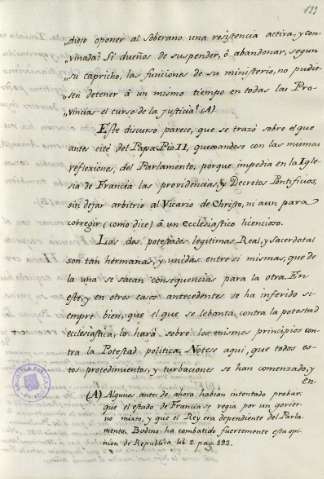 133
„diese oponer al Soberano una resistencia activa, y con-
„vinada? Si dueños de suspender, ó abandonar, segun
„su capricho, las funciones de su ministerio, no pudie-
„sen detener á un mismo tiempo en todas las Pro-
„vincias el curso de la justicia? (A)
Este discurso parece, que se trazó sobre el que
ante cité del Papa Pio II, quexandose con las mismas
reflexiones, del Parlamento, porque impedia en la Igle-
sia de Francia las providencias, y Decretos Pontificios,
sin dejar arbitrio al Vicario de Christo, ni aun para
corregir (como dice) á un eclesiastico
Las dos potestades legitimas, Real, y Sacerdotal
son tan hermanas, y unidas entre si mismas, que de
la una se sacan consequencias para la otra. En
este, y en otros casos antecedentes se ha inferido si-
empre bien, que el que se lebanta contra la potestad
eclesiastica, lo hará sobre los mismos principios con-
tra la Potestad politica. Notese aqui, que todos es-
tos procedimientos, y turbaciones se han comenzado, y
en
(A) Algunos antes de ahora habian intentado probar,
que el estado de Francia se regia por un govier-
no mixto, y que el Rey era dependiente del Parla-
mento. Bodino ha combatido fuertemente esta opi-
nion de Republica lib. 2. pag.